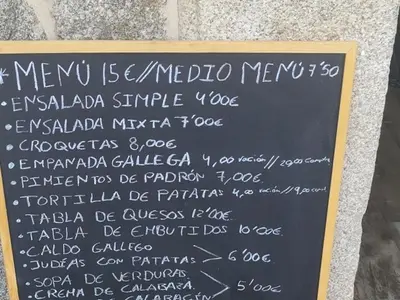 * MENÚ 15€//MEDIO MENÚ 7'50
• ENSALADA SIMPLE 4'00€
• ENSALADA MIXTA 7'00€
• CROQUETAS 8,00€
• EMPANADA GALLEGA 4,00 ración//20,00
• PIMIENTOS DE PADRÓN 7,00€
• TORTILLA DE PATATAS 4,00 ración//9,00
• TABLA DE QUESOS 12'00€
• TABLA DE EMBUTIDOS 10'00€
• CALDO GALLEGO
• JUDÍAS CON PATATAS > 6'00€
• SOPA DE VERDURAS
• CREMA DE CALABAZA > 5'00€